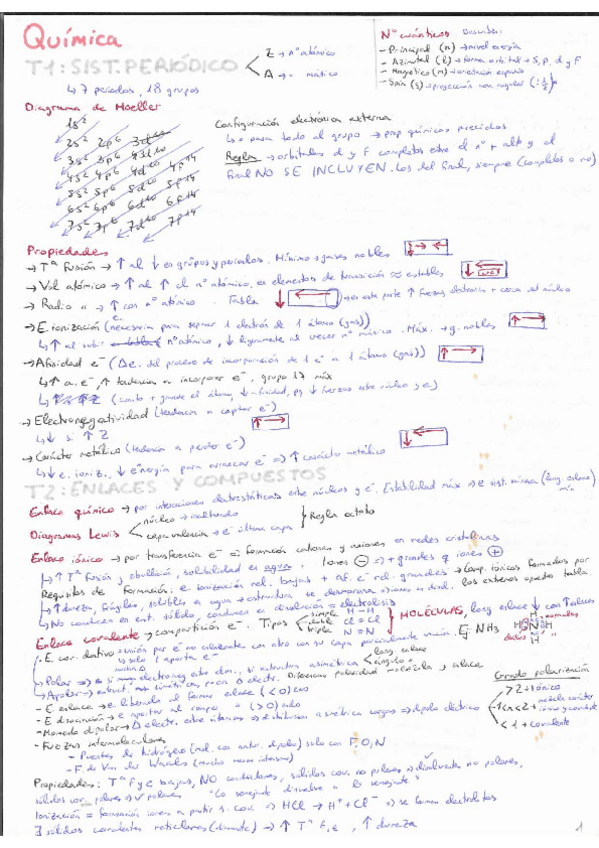 Química
T1: SIST. PERIÓDICO
Z → nº atómico
A → " másico
↳ 7 periodos, 18 grupos
Nº cuánticos Describe:
- Principal (n) → nivel energía
- Azimutal (l) → forma orbital → s, p, d y F
- Magnético (m) → orientación espacio
- Spin (s) →
Diagrama de Moeller
1s²
2s² 2p⁶ 3d¹⁰
3s² 3p⁶ 4d¹⁰
4s² 4p⁶ 4d¹⁰ 4f¹⁴
5s² 5p⁶ 5d¹⁰ 5f¹⁴
6s² 6p⁶ 6d¹⁰ 6f¹⁴
7s² 7p⁶ 7d¹⁰ 7f¹⁴
Configuración electrónica externa
↳ = para todo el grupo → prop químicas parecidas
Regla → orbitales d y F completos entre el nº + alto y el
final NO SE INCLUYEN. Los del final, siempre (completos o no)
Propiedades
→ Tª Fusión → ↑ al ↓ en grupos y periodos. Mínimo → gases nobles
→ Vol atómico → ↑ al ↑ el nº atómico, en elementos de transición ≈ estables
→ Radio " → ↑ con nº atómico. Tabla → en esta parte ↑ fuerzas + cerca del núcleo
→ E. ionización (necesaria para separar 1 electrón de 1 átomo (gas))
↳ ↑ al subir nº atómico, ↓ ligeramente al crecer nº másico. Máx. → g. nobles
→ Afinidad e⁻ (Δe. del proceso de incorporación de 1 e⁻ a 1 átomo (gas))
↳ ↑ a. e⁻, ↑ tendencia a incorporar e⁻, grupo 17 máx
(cuanto + grande el átomo, ↓ afinidad, pq ↓ fuerzas entre núcleo y e)
→ Electronegatividad (tendencia a captar e⁻)
↳ ↓ si ↑ Z
→ Carácter metálico (tendencia a perder e⁻)
↳ ↓ e. ioniz., ↓ energía para arrancar e⁻ ⇒ ↑ carácter metálico
T2: ENLACES Y COMPUESTOS
Enlace químico → por interacciones electrostáticas entre núcleos y e⁻. Estabilidad máx → e sist. mínima (long. enlace) min
Diagramas Lewis
núcleo →
capa valencia → e⁻ última capa
Regla octeto
Enlace iónico → por transferencia e⁻ ⇒ formación cationes y aniones en redes cristalinas
↳ ↑ Tª fusión y ebullición, solubilidad en agua. Iones ⊖ → + grandes q iones ⊕
Requisitos de formación: e ionización rel. bajas + af. e⁻ rel. grandes → Comp. iónicos formados por los extremos opuestos tabla
↳ ↑ dureza, frágiles, solubles en agua → estructura se desmorona → iones en disol.
↳ No conducen en est. sólido, conducen en disolución = electrólisis
Enlace covalente → compartición e⁻. Tipos
simple H - H
doble
triple N ≡ N
MOLÉCULAS, long enlace ↓ con ↑ enlaces
Ej NH₃
normales
dativo
. E. cov. dativo: unión por e⁻ no enlazante con otro con su capa parcialmente vacía.
↳ solo 1 aporta e⁻
↳ Polar → si muy electroneg. estre elem., si estructura asimétrica
long enlace
ángulo "
↳ Apolar → estruct. más simétricas, poca Δ electr. Diferenciar polaridad molécula y enlace
- E. enlace → e. liberada al formar enlace (< 0) siempre
- E disociación → e aportar al romper " (> 0) siempre
- Momento dipolar → Δ electr. entre átomos → distribución asimétrica cargas → dipolo eléctrico
Grado polarización
> 2 → iónico
1 < x < 2 → mezcla carácter iónico y covalente
< 1 → covalente
- Fuerzas intermoleculares
- Puentes de hidrógeno solo con F, O, N
- F. de Van der Waals (mucho menos intensas)
Propiedades: Tª f y e bajas, NO conductores, sólidos cov. no polares → disolventes no polares,
sólidos cov. polares → polares "Lo semejante disuelve a lo semejante"
Ionización = formación iones a partir s. cov. ⇒ HCl → H⁺ + Cl⁻ ⇒ se forman electrolitos
∃ sólidos covalentes reticulares (diamante) → ↑ Tª F, e, ↑ dureza
1